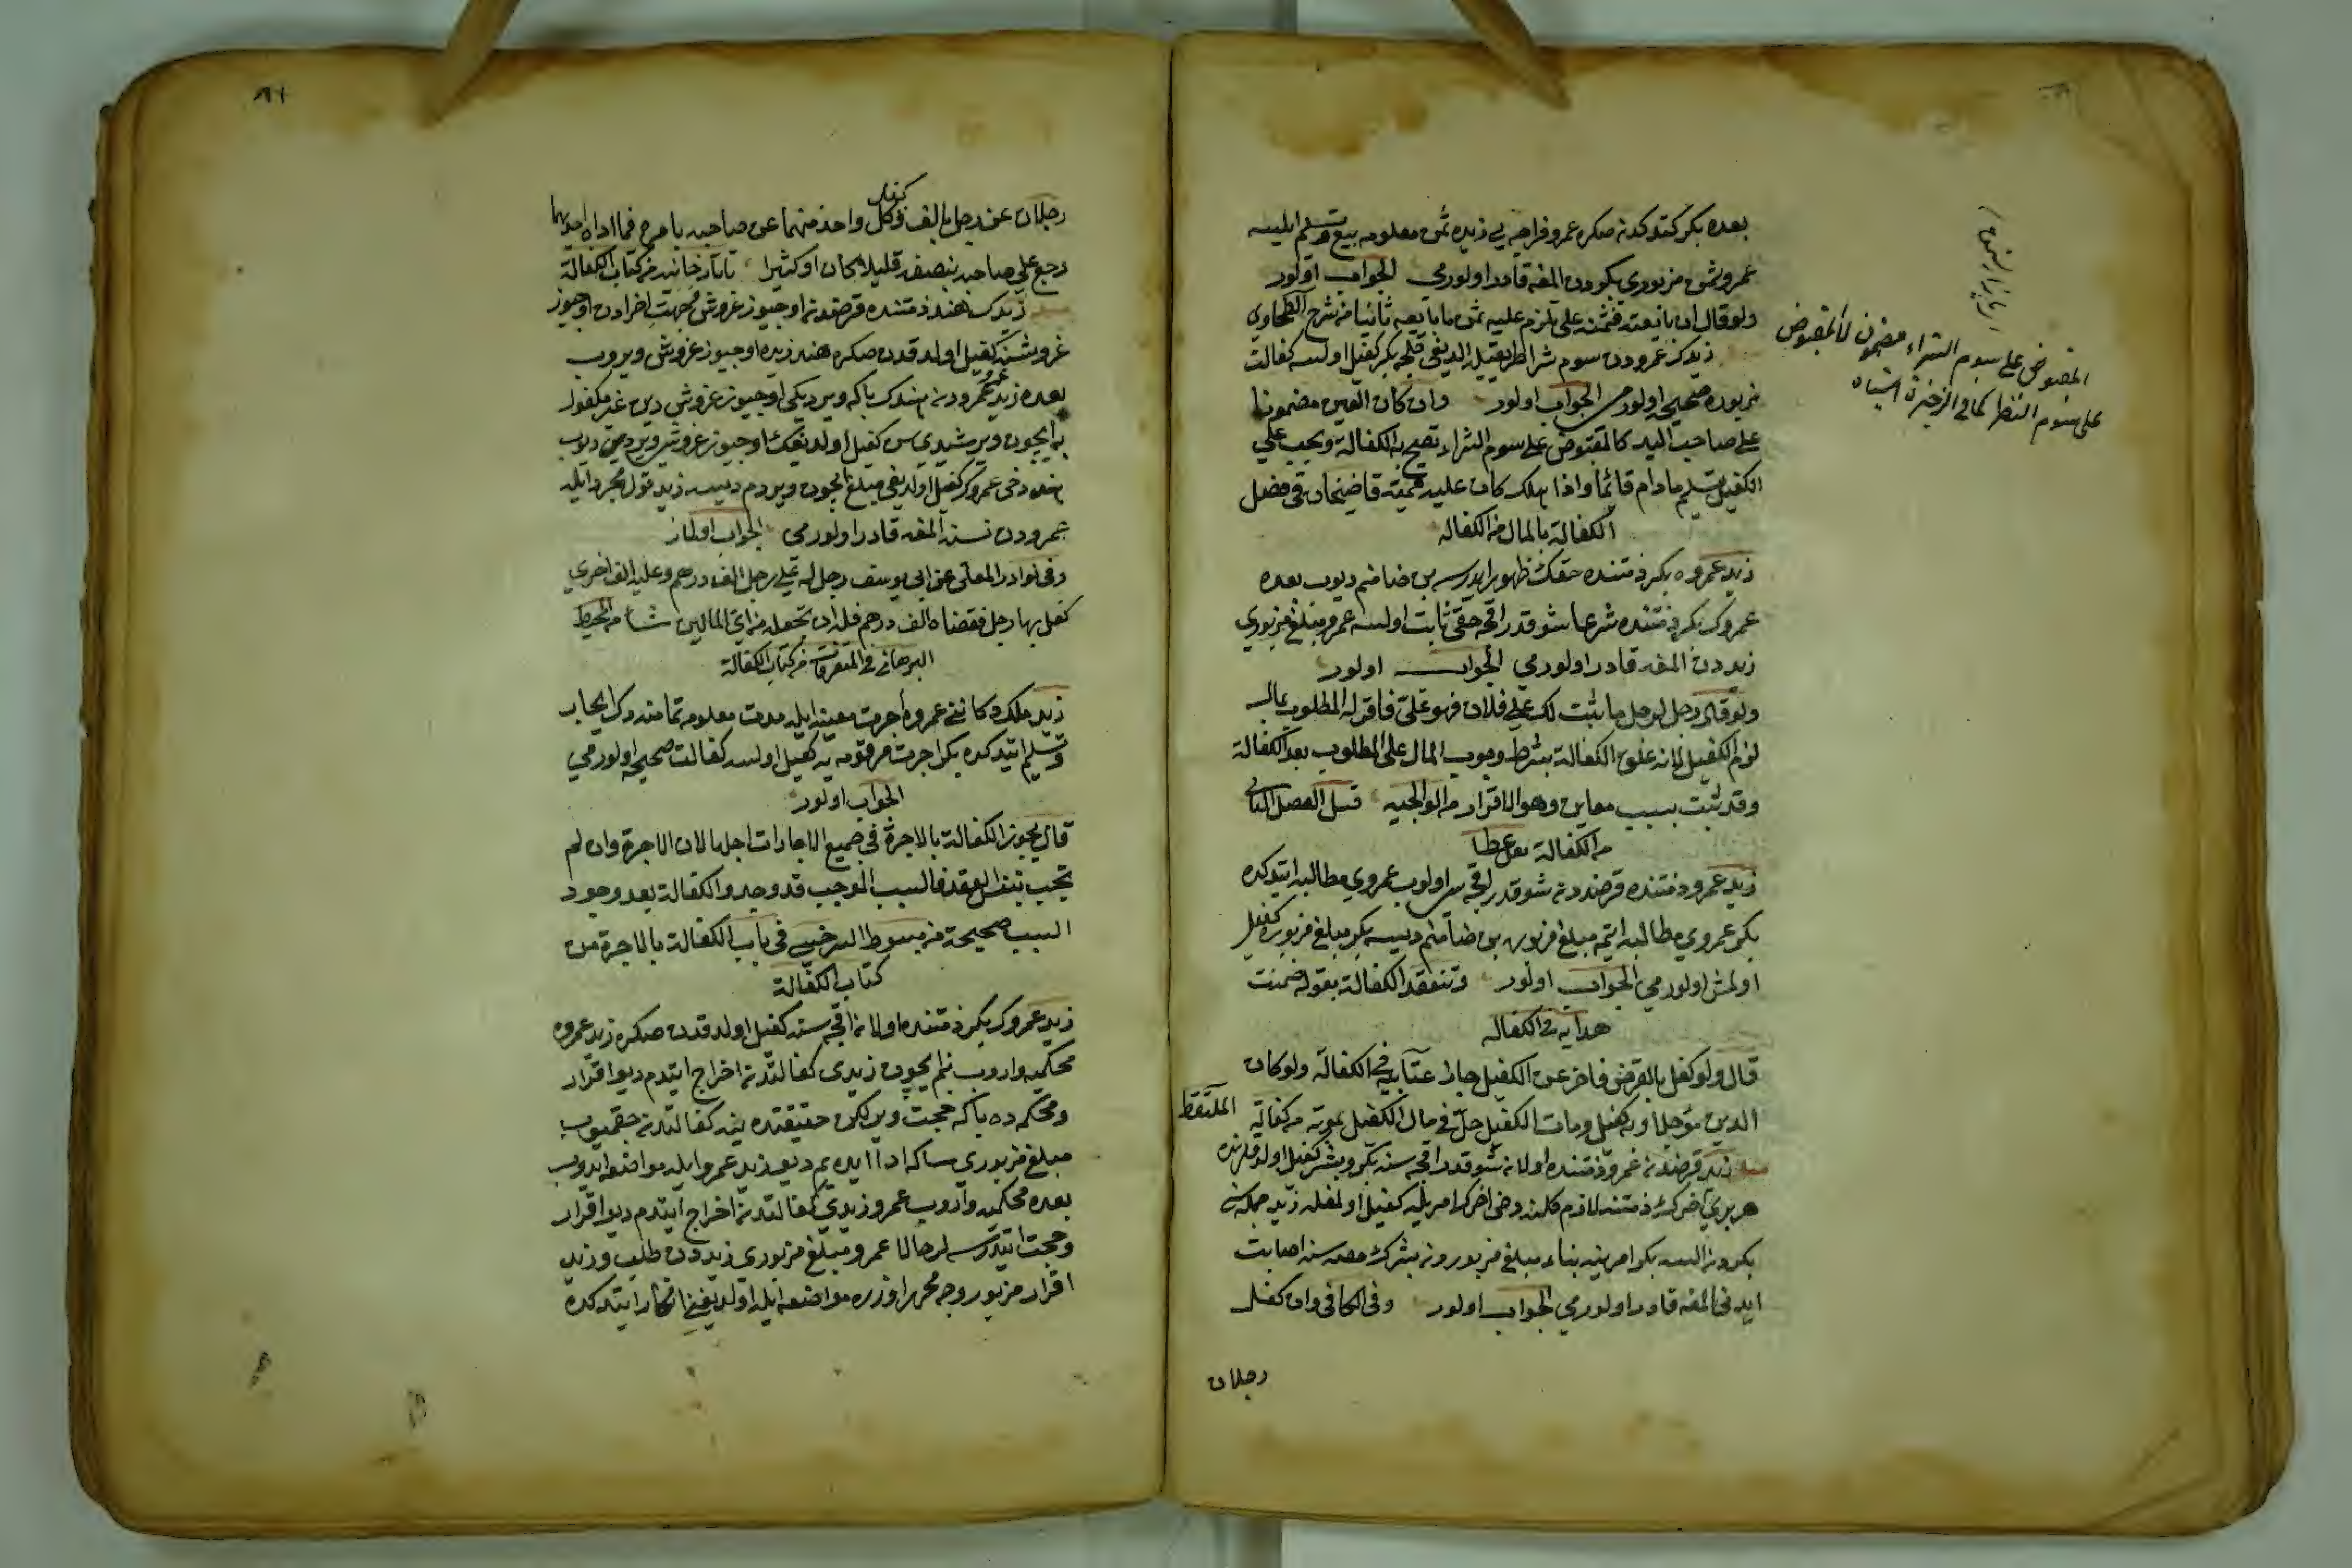 بعده بكر كتدكدنصكره عمرو فراجه يي زيده ثمن معلومه بيع و تسليم ايلسه
عمرو ثمن مزبوري بكردن المغه قادر اولورمي الجواب اولور
ولو قال ان بايعته فثمنه علي تلزم عليه ثمن ما بايعه ثانيا من شرح الطحاوي
زيدك عمرودن سوم شرا طريقيله الديغي قلجه بكر كفيل اولسه كفالت
مزبوره صحيحه اولورمي الجواب اولور وان كان العين مضمونا
على صاحب اليد كالمقبوض على سوم الشراء تصح به الكفالة ويجب على
الكفيل تسليم مادام قائما واذا هلك كان عليه قيمته قاضيخان في فصل
الكفالة بالمال من الكفاله
زيد عمروه بكر ذمتنده حقك ظهور ايدرسه بن ضامنم ديوب بعده
عمروك بكر ذمتنده شرعا شو قدر اقچه حقي ثابت اولسه عمرو مبلغ مزبوري
زيددن المغه قادر اولورمي الجواب اولور
ولو قال رجل لرجل ما يثبت لك على فلان فهو عليّ فاقر له المطلوب بمال
لزم الكفيل لانه علق الكفالة بشرط وجوب المال على المطلوب بعد الكفالة
وقد ثبت بسبب معاين وهو الاقرار من الولوالجيه قبيل الفصل الثاني
من الكفالة
زيد عمرو ذمتنده قرضدن شو قدر اقچه سي اولوب عمروي مطالبه ايتدكده
بكر عمروي مطالبه ايتمه مبلغ مزبوره بن ضامنم ديسه بكر مبلغ مزبوره كفيل
اولمش اولورمي الجواب اولور وتنعقد الكفالة بقوله ضمنت
هدايه في الكفاله
قال ولو كفل بالقرض فاخر عن الكفيل جاز عتابيه في الكفالة ولو كان
الدين مؤجلا وبه كفيل ومات الكفيل حلّ في مال الكفيل بموته من كفالة الملتقط
زيد قرضدن عمرو ذمتنده اولان شو قدر اقچه سنه بكر و بشر كفيل اولدقلرنده
هر بري اخرك ذمتنه لازم كلنه دخي اخرك امريله كفيل اولمغله زيد جمله سن
بكردن السه بكر امرينه بناء مبلغ مزبوردن بشرك حصه سنه اصابت
ايدني المغه قادر اولورمي الجواب اولور وفي الكافي وان كفل
رجلان
المقبوض على سوم الشراء مضمون لا المقبوض
على سوم النظر كما في الذخيرة اشباه
رجلان عن رجل بالف وكفل كل واحد منهما عن صاحبه بامره فما اداه احدهما
رجع على صاحبه بنصفه قليلا كان او كثيرا تاتارخانيه من كتاب الكفالة
زيدك هند ذمتنده قرضدن اوچيوز غروش و جهت اخرادن اوچيوز
غروشنه كفيل اولدقدن صكره هند زيده اوچيوز غروش ويروب
بعده زيد عمرودن هندك باكه ويرديكي اوچيوز غروش دين غير مكفول
به ايچون ويرمشيدي سن كفيل اولديغك اوچيوز غروشي ويرمدي ديوب
هند دخي عمروك كفيل اولديغي مبلغ ايچون ويردم ديسه زيد قول مجرد ايله
عمرودن نسنه المغه قادر اولورمي الجواب اولماز
وفي نوادر المعلى عن ابي يوسف رجل له على رجل الف درهم وعليه الف اخرى
كفل بها رجل فقضاه الف درهم فله ان يجعله من اي المالين شاء من المحيط
البرهاني في المتفرقات من كتاب الكفالة
زيد ملك دكانني عمروه اجرت معينه ايله مدت معلومه تمامنه دك ايجار
و تسليم ايتدكده بكر اجرت مرقومه يه كفيل اولسه كفالت صحيحه اولورمي
الجواب اولور
قال يجوز الكفالة بالاجرة في جميع الاجارات اجلها لان الاجرة وان لم
تجب بنفس العقد فالسبب الموجب قد وجد والكفالة بعد وجود
السبب صحيحة من مبسوط السرخسي في باب الكفالة بالاجرة من
كتاب الكفالة
زيد عمروك بكر ذمتنده اولان اقچه سنه كفيل اولدقدن صكره زيد عمروه
محكمه يه واروب بنم ايچون زيدي كفالتدن اخراج ايتدم ديو اقرار
ومحكمه ده باكه حجت وير لكن حقيقتده ينه كفالتدن چقميوب
مبلغ مزبوري ساكه ادا ايده يم ديو زيد عمرو ايله مواضعه ايدوب
بعده محكمه يه واروب عمرو زيدي كفالتدن اخراج ايتدم ديو اقرار
و حجت ايتدرسه لر حالا عمرو مبلغ مزبوري زيددن طلب و زيد
اقرار مزبور وجه محرر اوزره مواضعه ايله اولديغني انكار ايتدكده